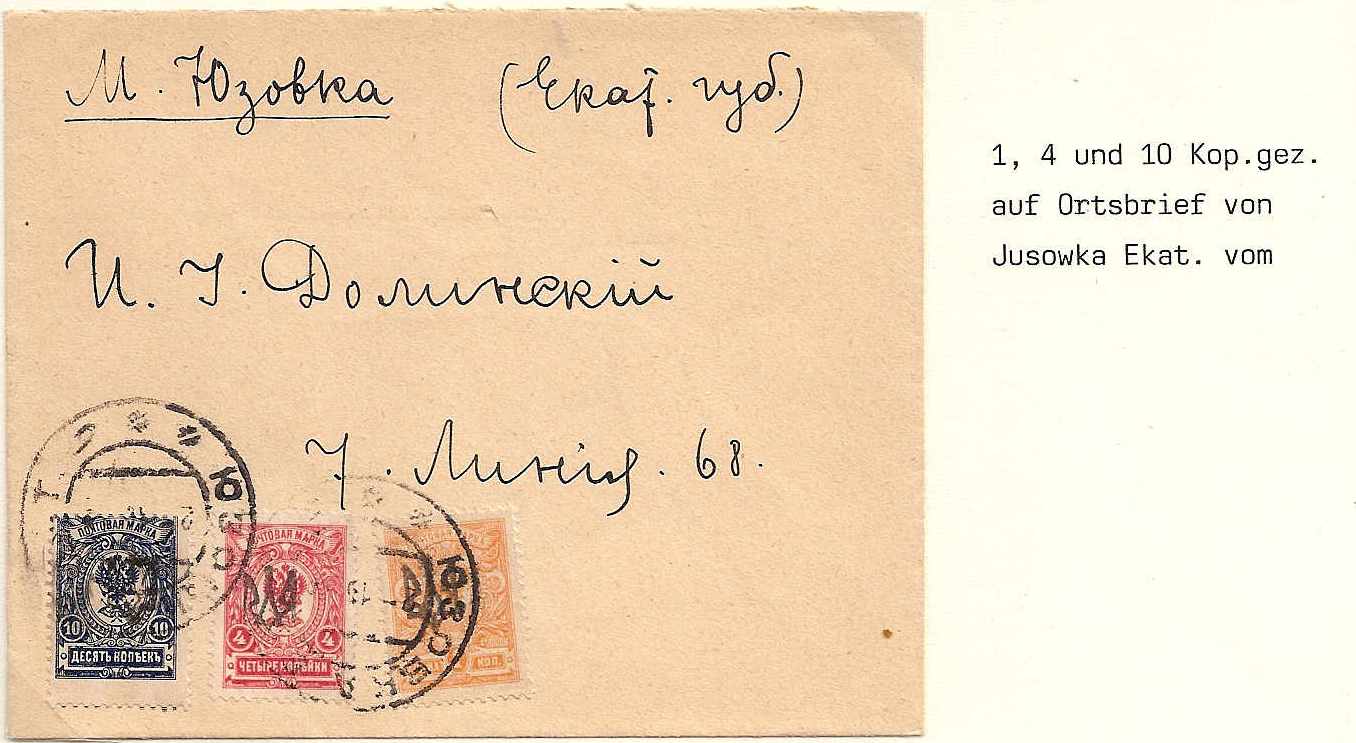 М. Юзовка (Екат. губ.)
И. І. Долинскій
7. Линія. 68.
ЮЗОВКА
ЮЗОВКА
ПОЧТОВАЯ МАРКА
10 10
ДЕСЯТЬ КОПѢЕКЪ
ПОЧТОВАЯ МАРКА
4 4
ЧЕТЫРЕ КОПѢЙКИ
КОП.
1, 4 und 10 Kop.gez.
auf Ortsbrief von
Jusowka Ekat. vom